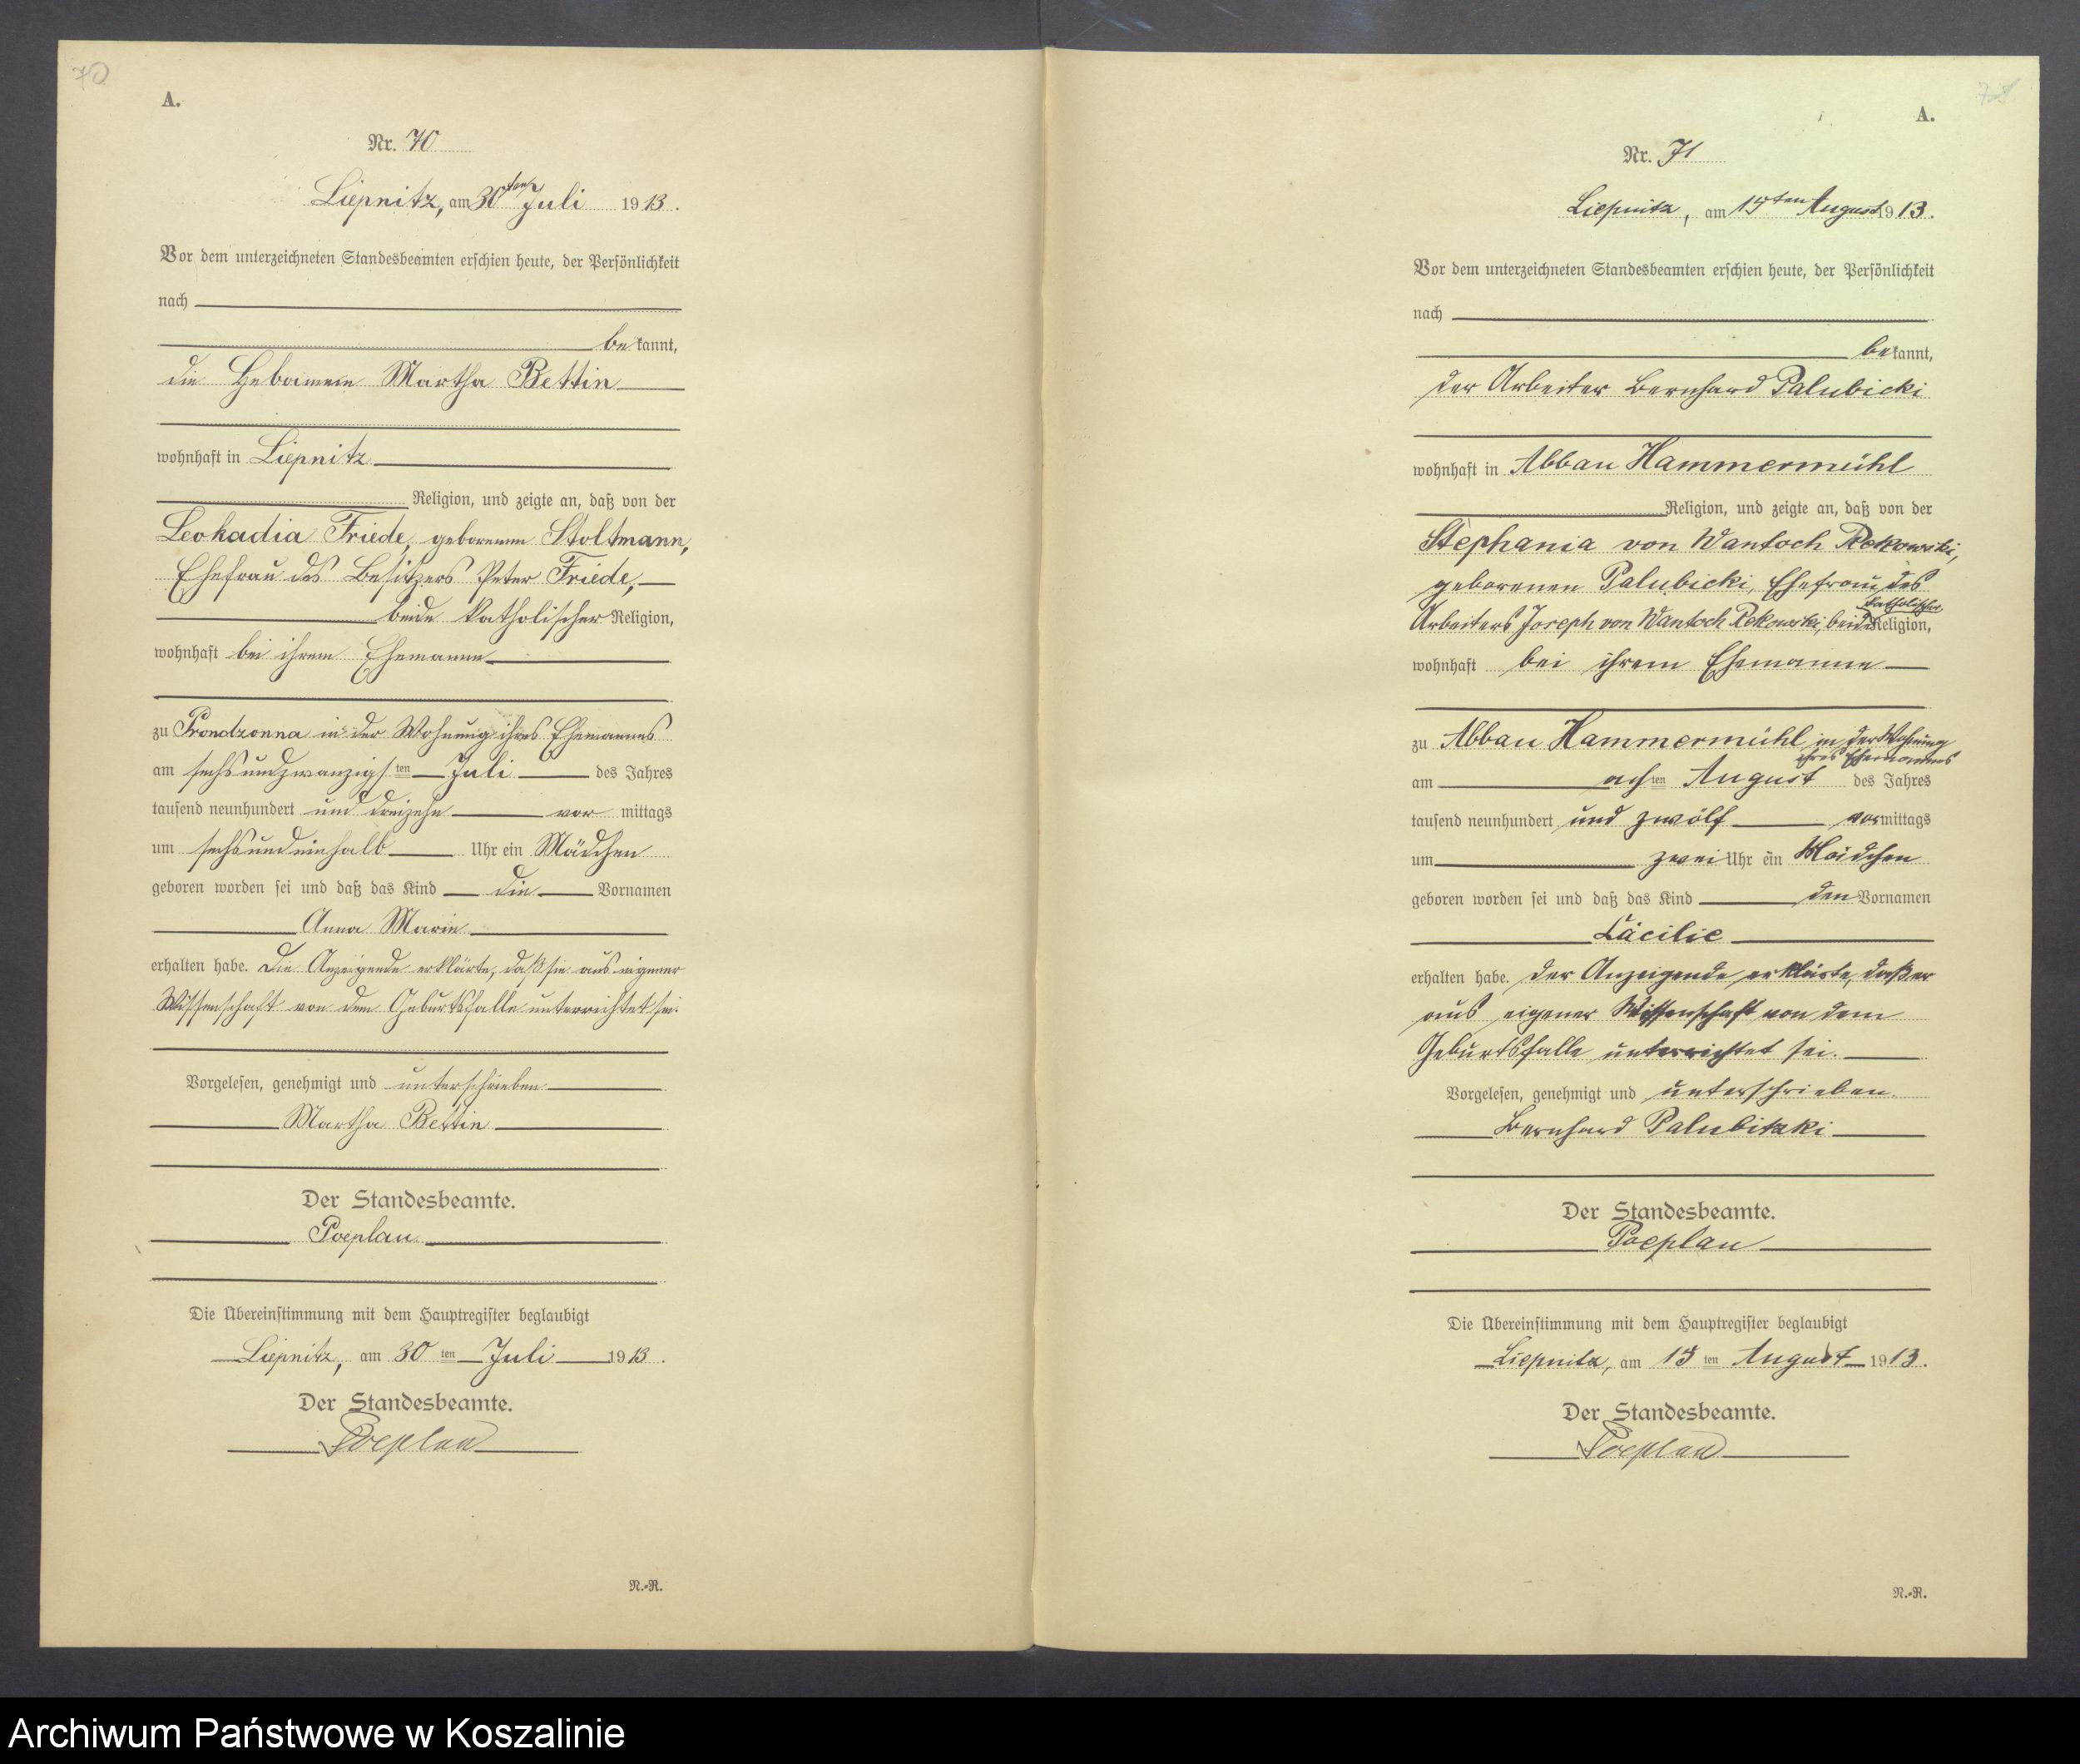 70
A.
Nr. 70
Liepnitz, am 30ten Juli 1913.
Vor dem unterzeichneten Standesbeamten erschien heute, der Persönlichkeit
nach
bekannt,
die Hebamme Martha Bettin
wohnhaft in Liepnitz
Religion, und zeigte an, daß von der
Leokadia Friede, geborenen Stoltmann,
Ehefrau des Besitzers Peter Friede,
beide katholischer Religion,
wohnhaft bei ihrem Ehemanne
zu Prondzonna in der Wohnung ihres Ehemannes
am sechsundzwanzigsten Juli des Jahres
tausend neunhundert und dreizehn vor mittags
um sechsundeinhalb Uhr ein Mädchen
geboren worden sei und daß das Kind die Vornamen
Anna Marie
erhalten habe. Die Anzeigende erklärte, daß sie aus eigener
Wissenschaft von dem Geburtsfalle unterrichtet sei.
Vorgelesen, genehmigt und unterschrieben
Martha Bettin
Der Standesbeamte.
Poeplau
Die Übereinstimmung mit dem Hauptregister beglaubigt
Liepnitz, am 30ten Juli 1913.
Der Standesbeamte.
Poeplau
N.-R.
71
A.
Nr. 71
Liepnitz, am 15ten August 1913.
Vor dem unterzeichneten Standesbeamten erschien heute, der Persönlichkeit
nach
bekannt,
der Arbeiter Bernhard Palubicki
wohnhaft in Abbau Hammermühl
Religion, und zeigte an, daß von der
Stephania von Wantoch Rekowski,
geborenen Palubicki, Ehefrau des
Arbeiters Joseph von Wantoch Rekowski, beide katholischer Religion,
wohnhaft bei ihrem Ehemanne
zu Abbau Hammermühl in der Wohnung
ihres Ehemannes
am achten August des Jahres
tausend neunhundert und zwölf vormittags
um zwei Uhr ein Mädchen
geboren worden sei und daß das Kind den Vornamen
Cäcilie
erhalten habe. Der Anzeigende erklärte, daß er
aus eigener Wissenschaft von dem
Geburtsfalle unterrichtet sei.
Vorgelesen, genehmigt und unterschrieben.
Bernhard Palubitzki
Der Standesbeamte.
Poeplau
Die Übereinstimmung mit dem Hauptregister beglaubigt
Liepnitz, am 15ten August 1913.
Der Standesbeamte.
Poeplau
N.-R.
Archiwum Państwowe w Koszalinie